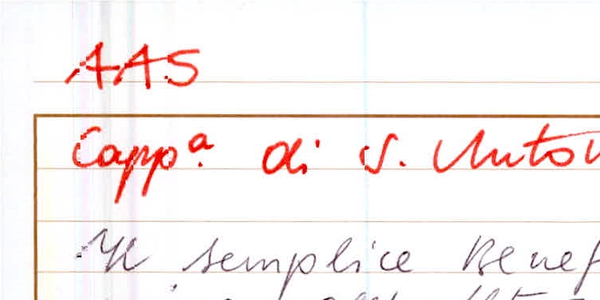 AAS
Capp.ª di S. Anton
Il semplice Benef